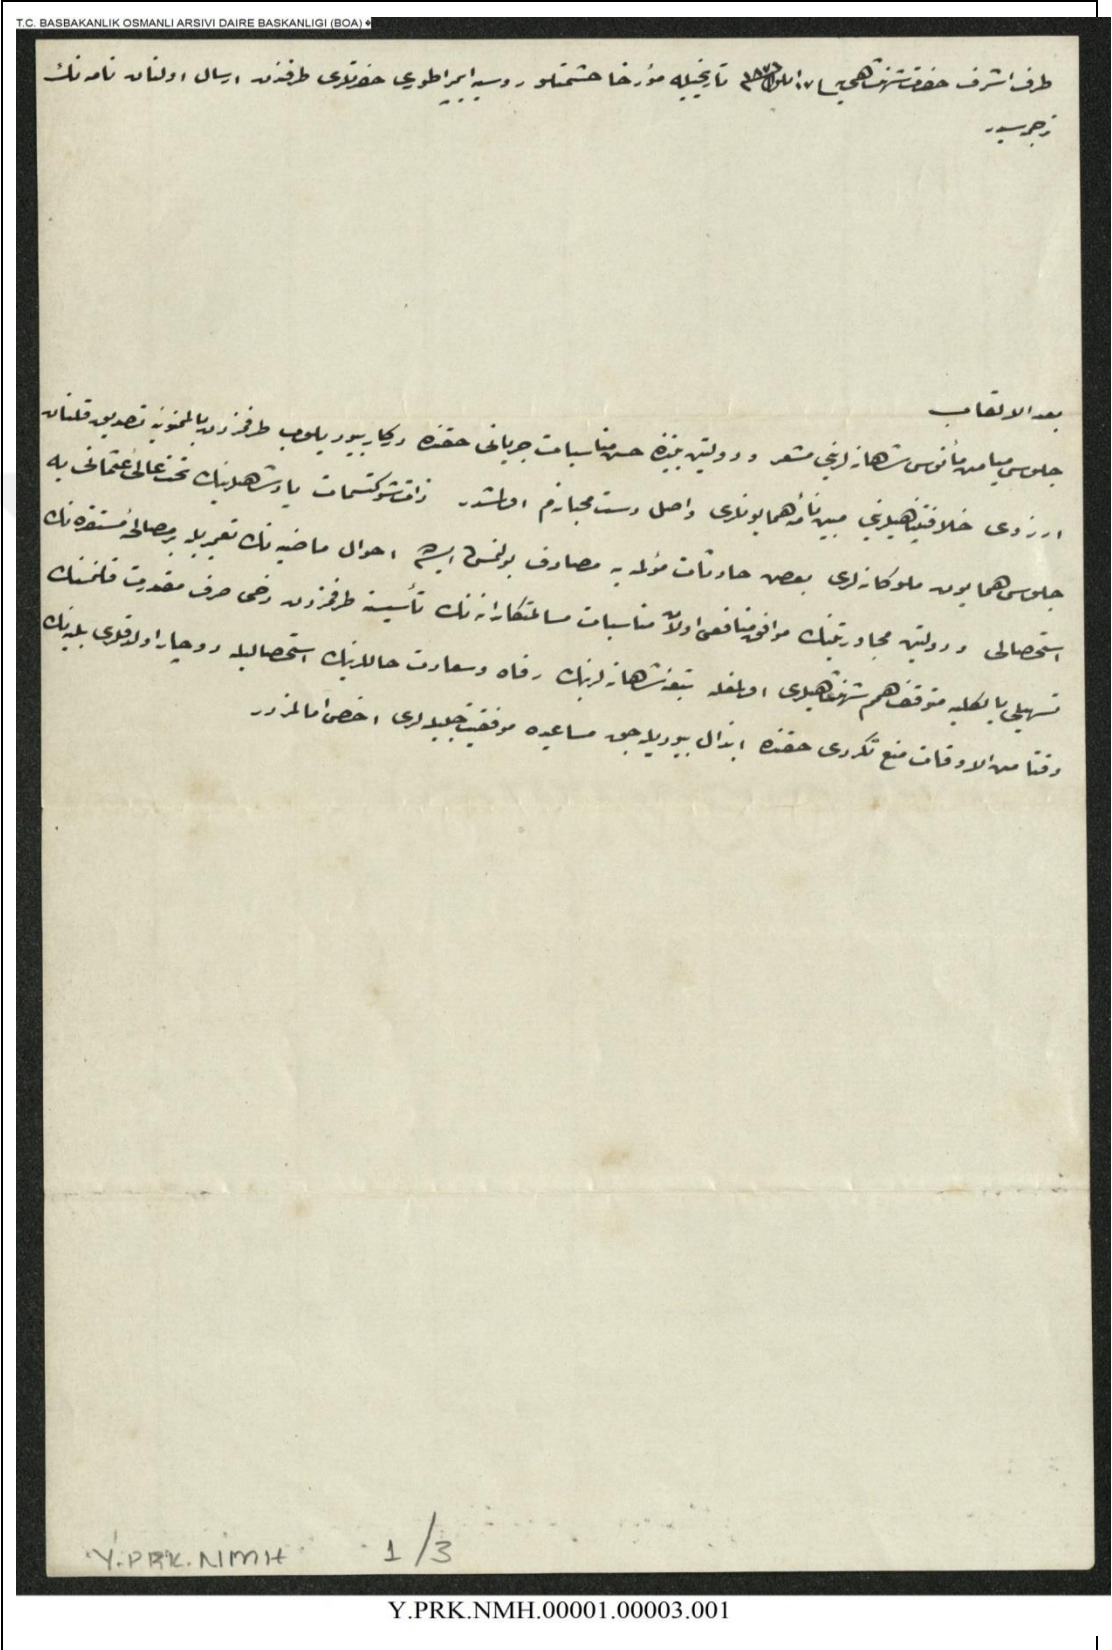 T.C. BASBAKANLIK OSMANLI ARSIVI DAIRE BASKANLIGI (BOA)
طرف اشرف حضرت شهنشاهی یه ١٧ ایلول ٨٧٦ تاریخیله مؤرخا حشمتلو روسیه ایمپراطوری حضرتلری طرفندن ارسال اولنان نامه نك
ترجمه سیدر
بعد الالقاب
جلوس میامن مأنوس شاهانه لرینی مشعر و دولتین بیننده حسن مناسبات جریانی حقنده درکار بیوریلوب طرفمزدن بالممنونیه تصدیق قلنان
ارزوی خلافتپناهیلرینی مبین نامۀ همایونلری واصل دست مجازم اولمشدر ذات شوکتسمات پادشاهیلرینك تخت عالئ عثمانی یه
جلوس همایون ملوکانه لری بعض حادثات مؤلمه یه مصادف بولنمش ایسه ده احوال ماضیه نك تعمیریله بر مصالحۀ مستقره نك
استحصالی و دولتین مجاورتینك موافق منافعی اولان مناسبات مسالمتکارانه نك تأسیسنه طرفمزدن دخی صرف مقدرت قلنمسنك
تسهیلی بالکلیه متوقف همم شهنشاهیلری اولمغله تبعۀ شاهانه لرینك رفاه و سعادت حاللرینك استحصالیله دوچار اولدقلری بلیه نك
وقتا من الاوقات منع تکرری حقنده ابذال بیوریله جق مساعیده موفقیت جلیله لری اخص امالمزدر
Y.PRK.NMH 1/3
Y.PRK.NMH.00001.00003.001